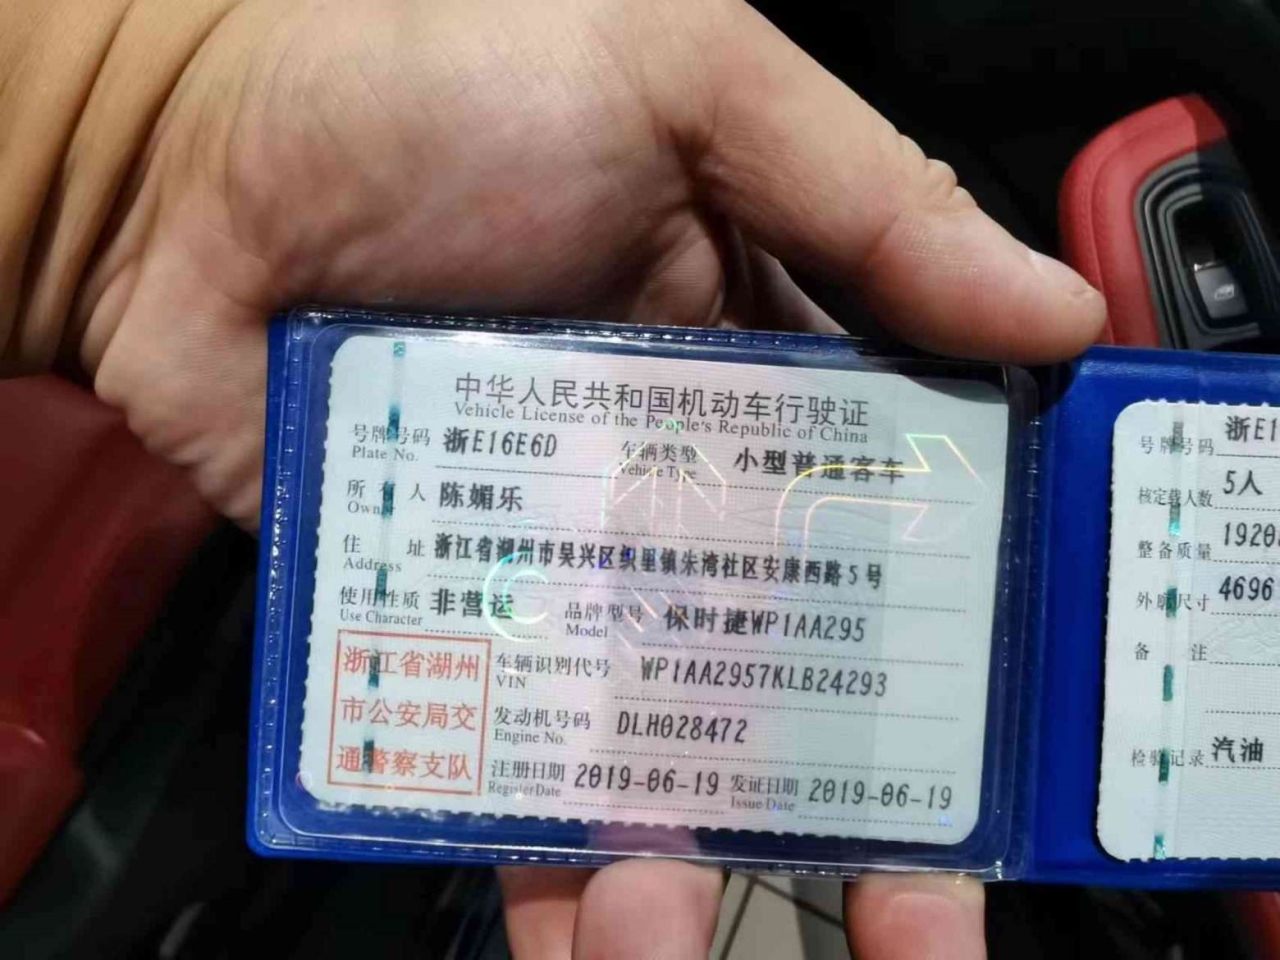 中华人民共和国机动车行驶证
Vehicle License of the People's Republic of China
号牌号码 Plate No. 浙E16E6D 车辆类型 Vehicle Type 小型普通客车
所有人 Owner 陈媚乐
住址 Address 浙江省湖州市吴兴区织里镇朱湾社区安康西路5号
使用性质 Use Character 非营运 品牌型号 Model 保时捷WP1AA295
浙江省湖州
市公安局交
通警察支队
车辆识别代号 VIN WP1AA2957KLB24293
发动机号码 Engine No. DLH028472
注册日期 Register Date 2019-06-19 发证日期 Issue Date 2019-06-19
号牌号码 浙E1
核定载人数 5人
整备质量 1920
外廓尺寸 4696
备注
检验记录 汽油